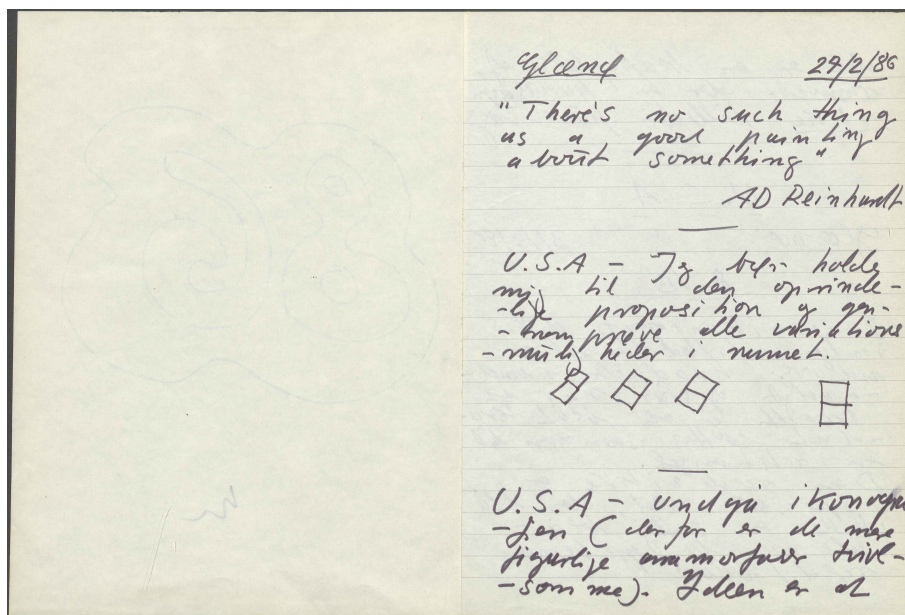 Gland 24/2/86
"There's no such thing
as a good painting
about something"
AD Reinhardt
U.S.A - Jeg bør holde
mig til den oprinde-
-lige proposition og gen-
-nemprøve alle variations
-muligheder i rummet.
U.S.A - undgå ikonogra
-fien (derfor er de mere
figurlige anamorfoser tvivl-
-somme). Ideen er at